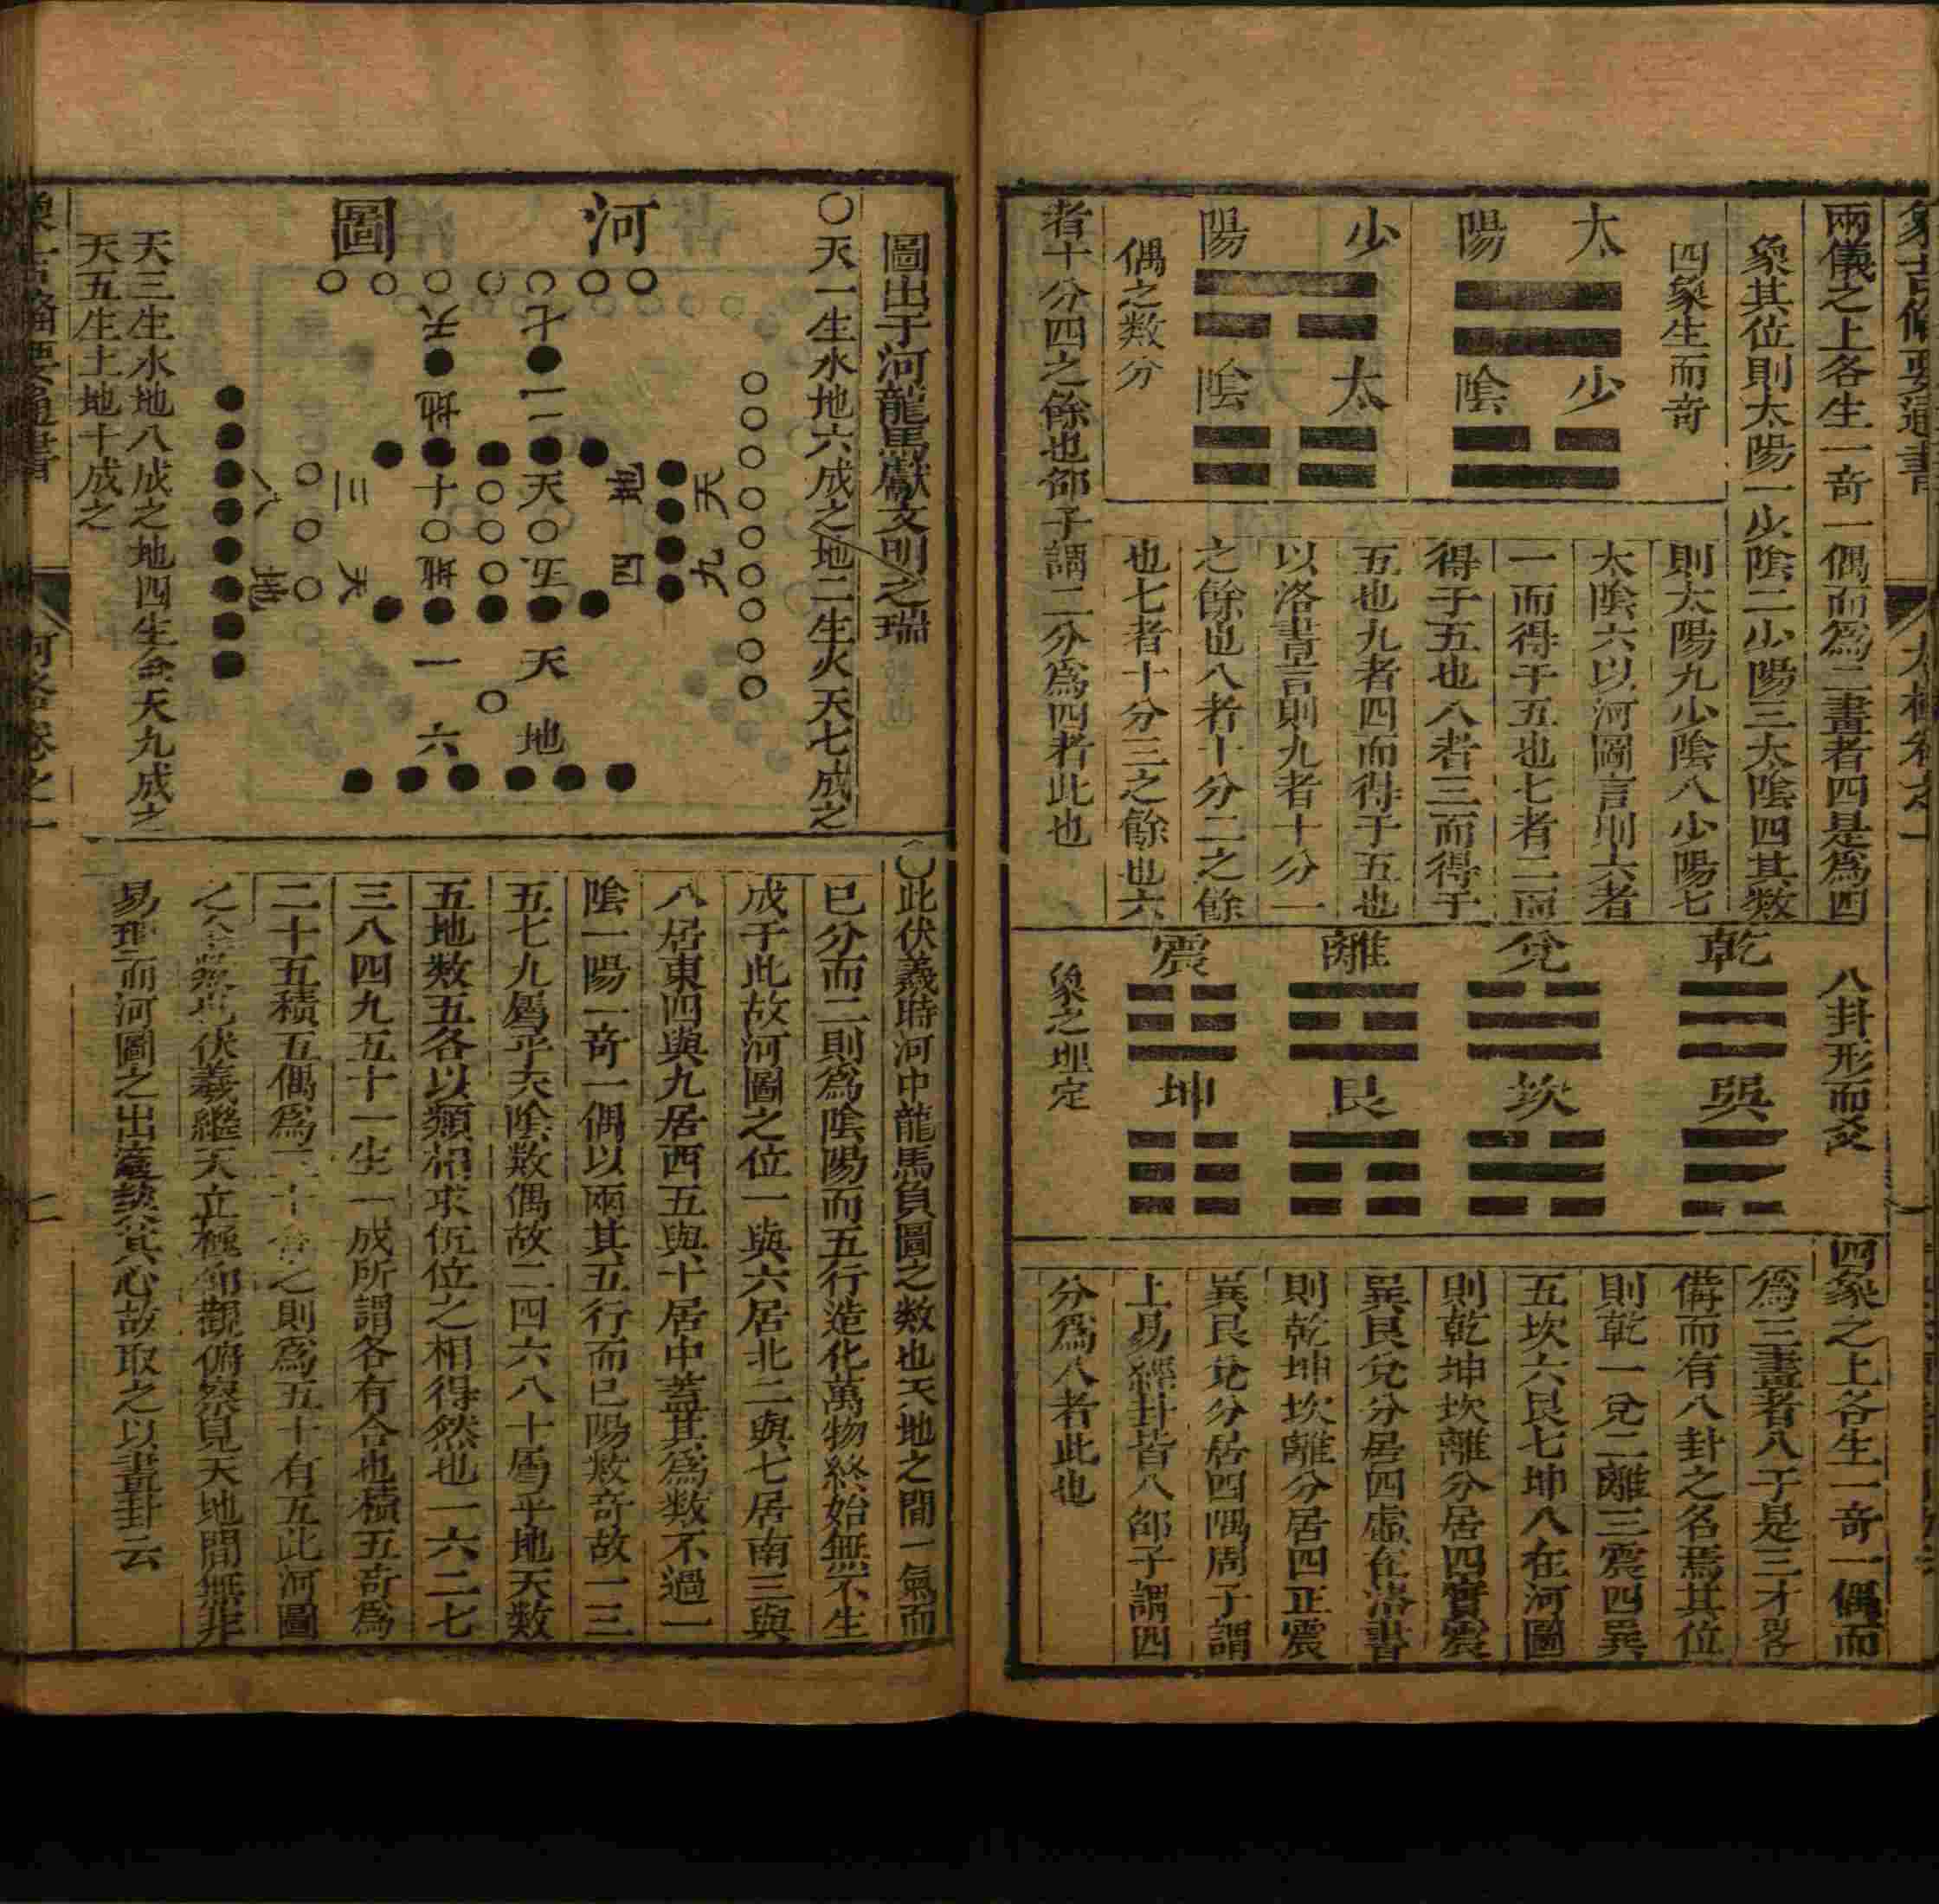 兩儀之上各生一奇一偶而爲二畫者四是爲四
象其位則太陽一少陰二少陽三太陰四其數
四象生而奇
太陽
少陰
少陽
太陰
偶之數分
則太陽九少陰八少陽七
太陰六以河圖言則六者
一而得于五也七者二而
得于五也八者三而得于
五也九者四而得于五也
以洛書言則九者十分一
之餘也八者十分二之餘
也七者十分三之餘也六
者十分四之餘也邵子謂二分爲四者此也
八卦形而爻
乾
兌
離
震
巽
坎
艮
坤
象之理定
四象之上各生一奇一偶而
爲三畫者八于是三才畧
備而有八卦之名焉其位
則乾一兌二離三震四巽
五坎六艮七坤八在河圖
則乾坤坎離分居四實震
巽艮兌分居四虛在洛書
則乾坤坎離分居四正震
巽艮兌分居四隅周子謂
上易經卦皆八邵子謂四
分爲八者此也
圖出于河龍馬獻文明之瑞
○天一生水地六成之地二生火天七成之
河圖
天七
地二
天五
地十
地四
天九
天三
地八
天一
地六
天三生水地八成之地四生金天九成之
天五生土地十成之
○此伏羲時河中龍馬負圖之數也天地之間一氣而
已分而二則爲陰陽而五行造化萬物終始無不生
成于此故河圖之位一與六居北二與七居南三與
八居東四與九居西五與十居中蓋其爲數不過一
陰一陽一奇一偶以兩其五行而已陽數奇故一三
五七九屬乎天陰數偶故二四六八十屬乎地天數
五地數五各以類相求伍位之相得然也一六二七
三八四九五十一生一成所謂各有合也積五奇爲
二十五積五偶爲三十合之則爲五十有五此河圖
之全數也伏羲繼天立極仰觀俯察見天地間無非
易理而河圖之出心故取之以畫卦云
河洛卷之一
二